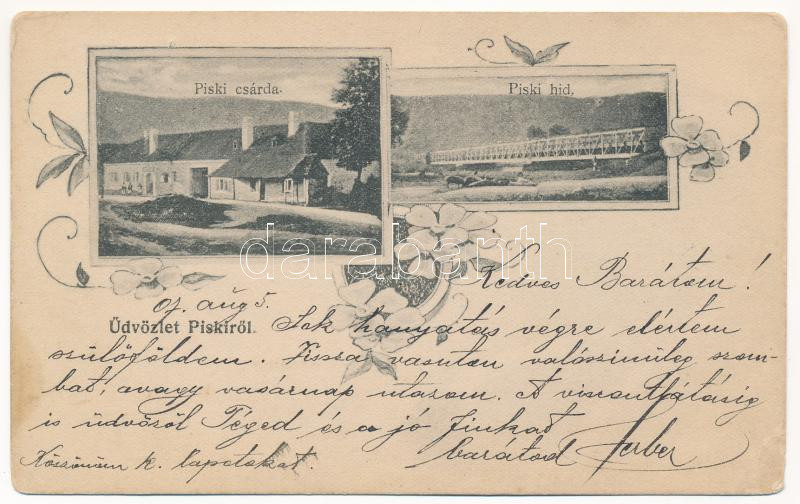 Piski csárda.
Piski hid.
darabanth
Kedves Barátom!
07. aug 5.
Üdvözlet Piskiről.
Sok hanyatás végre elértem
szülőföldem. Vissza vasuton valószinüleg szom-
bat, avagy vasárnap utazom. A viszontlátásig
is üdvözöl Téged és a jó fiukat
barátod Ferber
Köszönöm k. lapotokat.